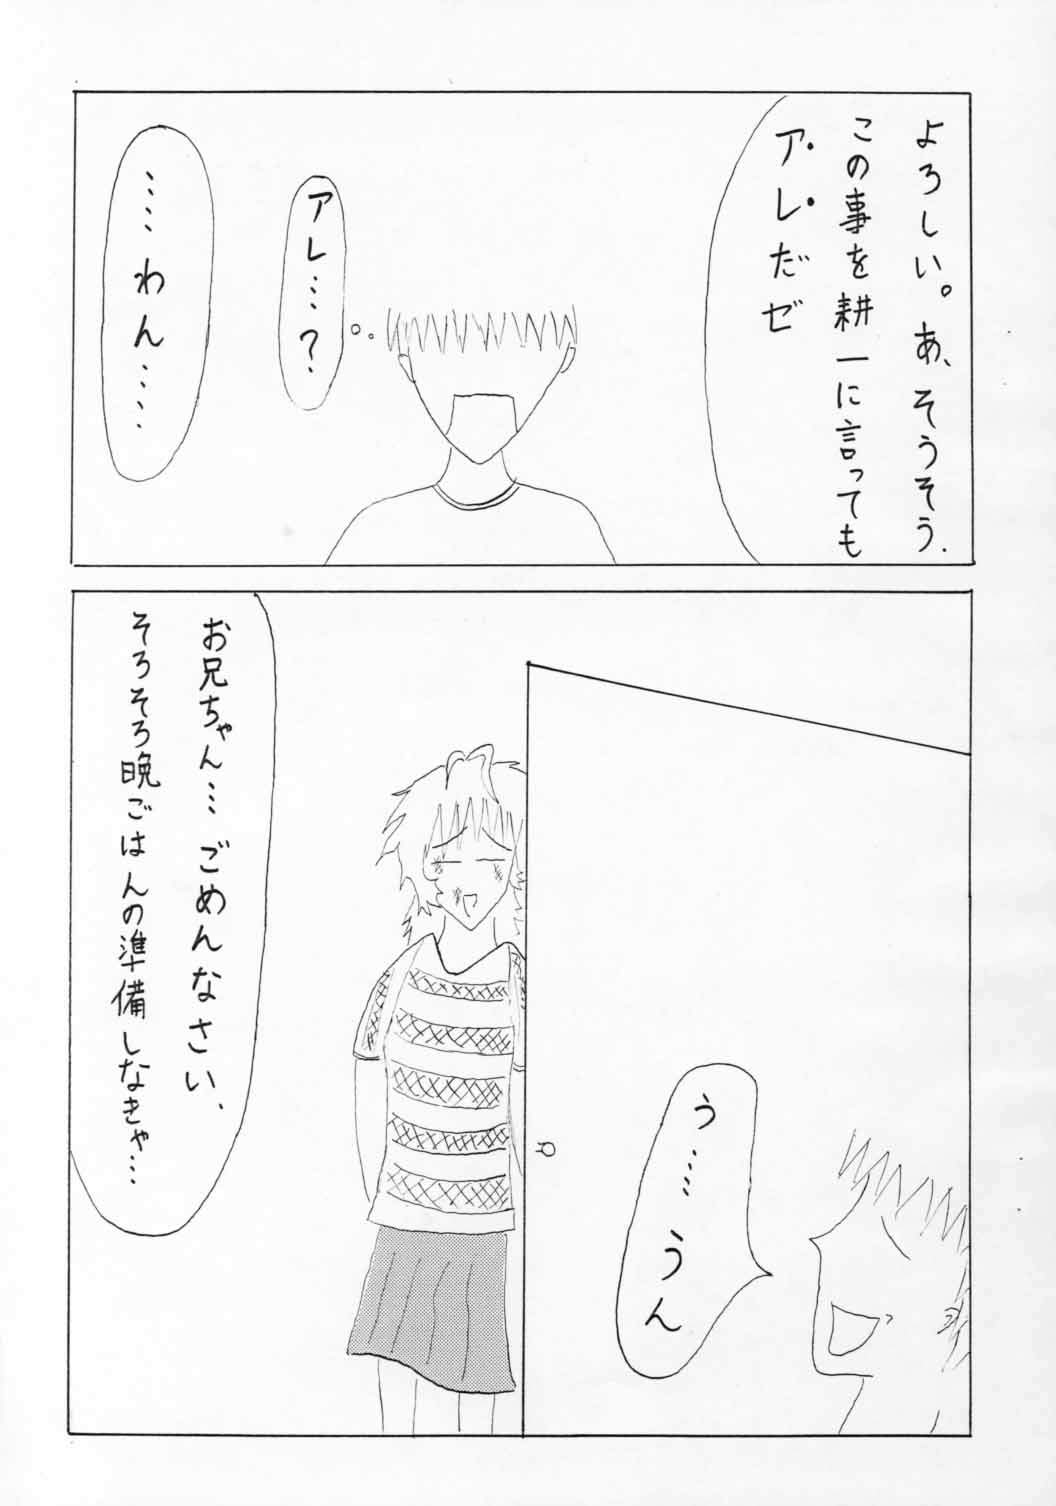 よろしい。あ、そうそう、
この事を耕一に言っても
アレだゼ
アレ…?
……わん……
う……うん
お兄ちゃん…ごめんなさい、
そろそろ晩ごはんの準備しなきゃ…